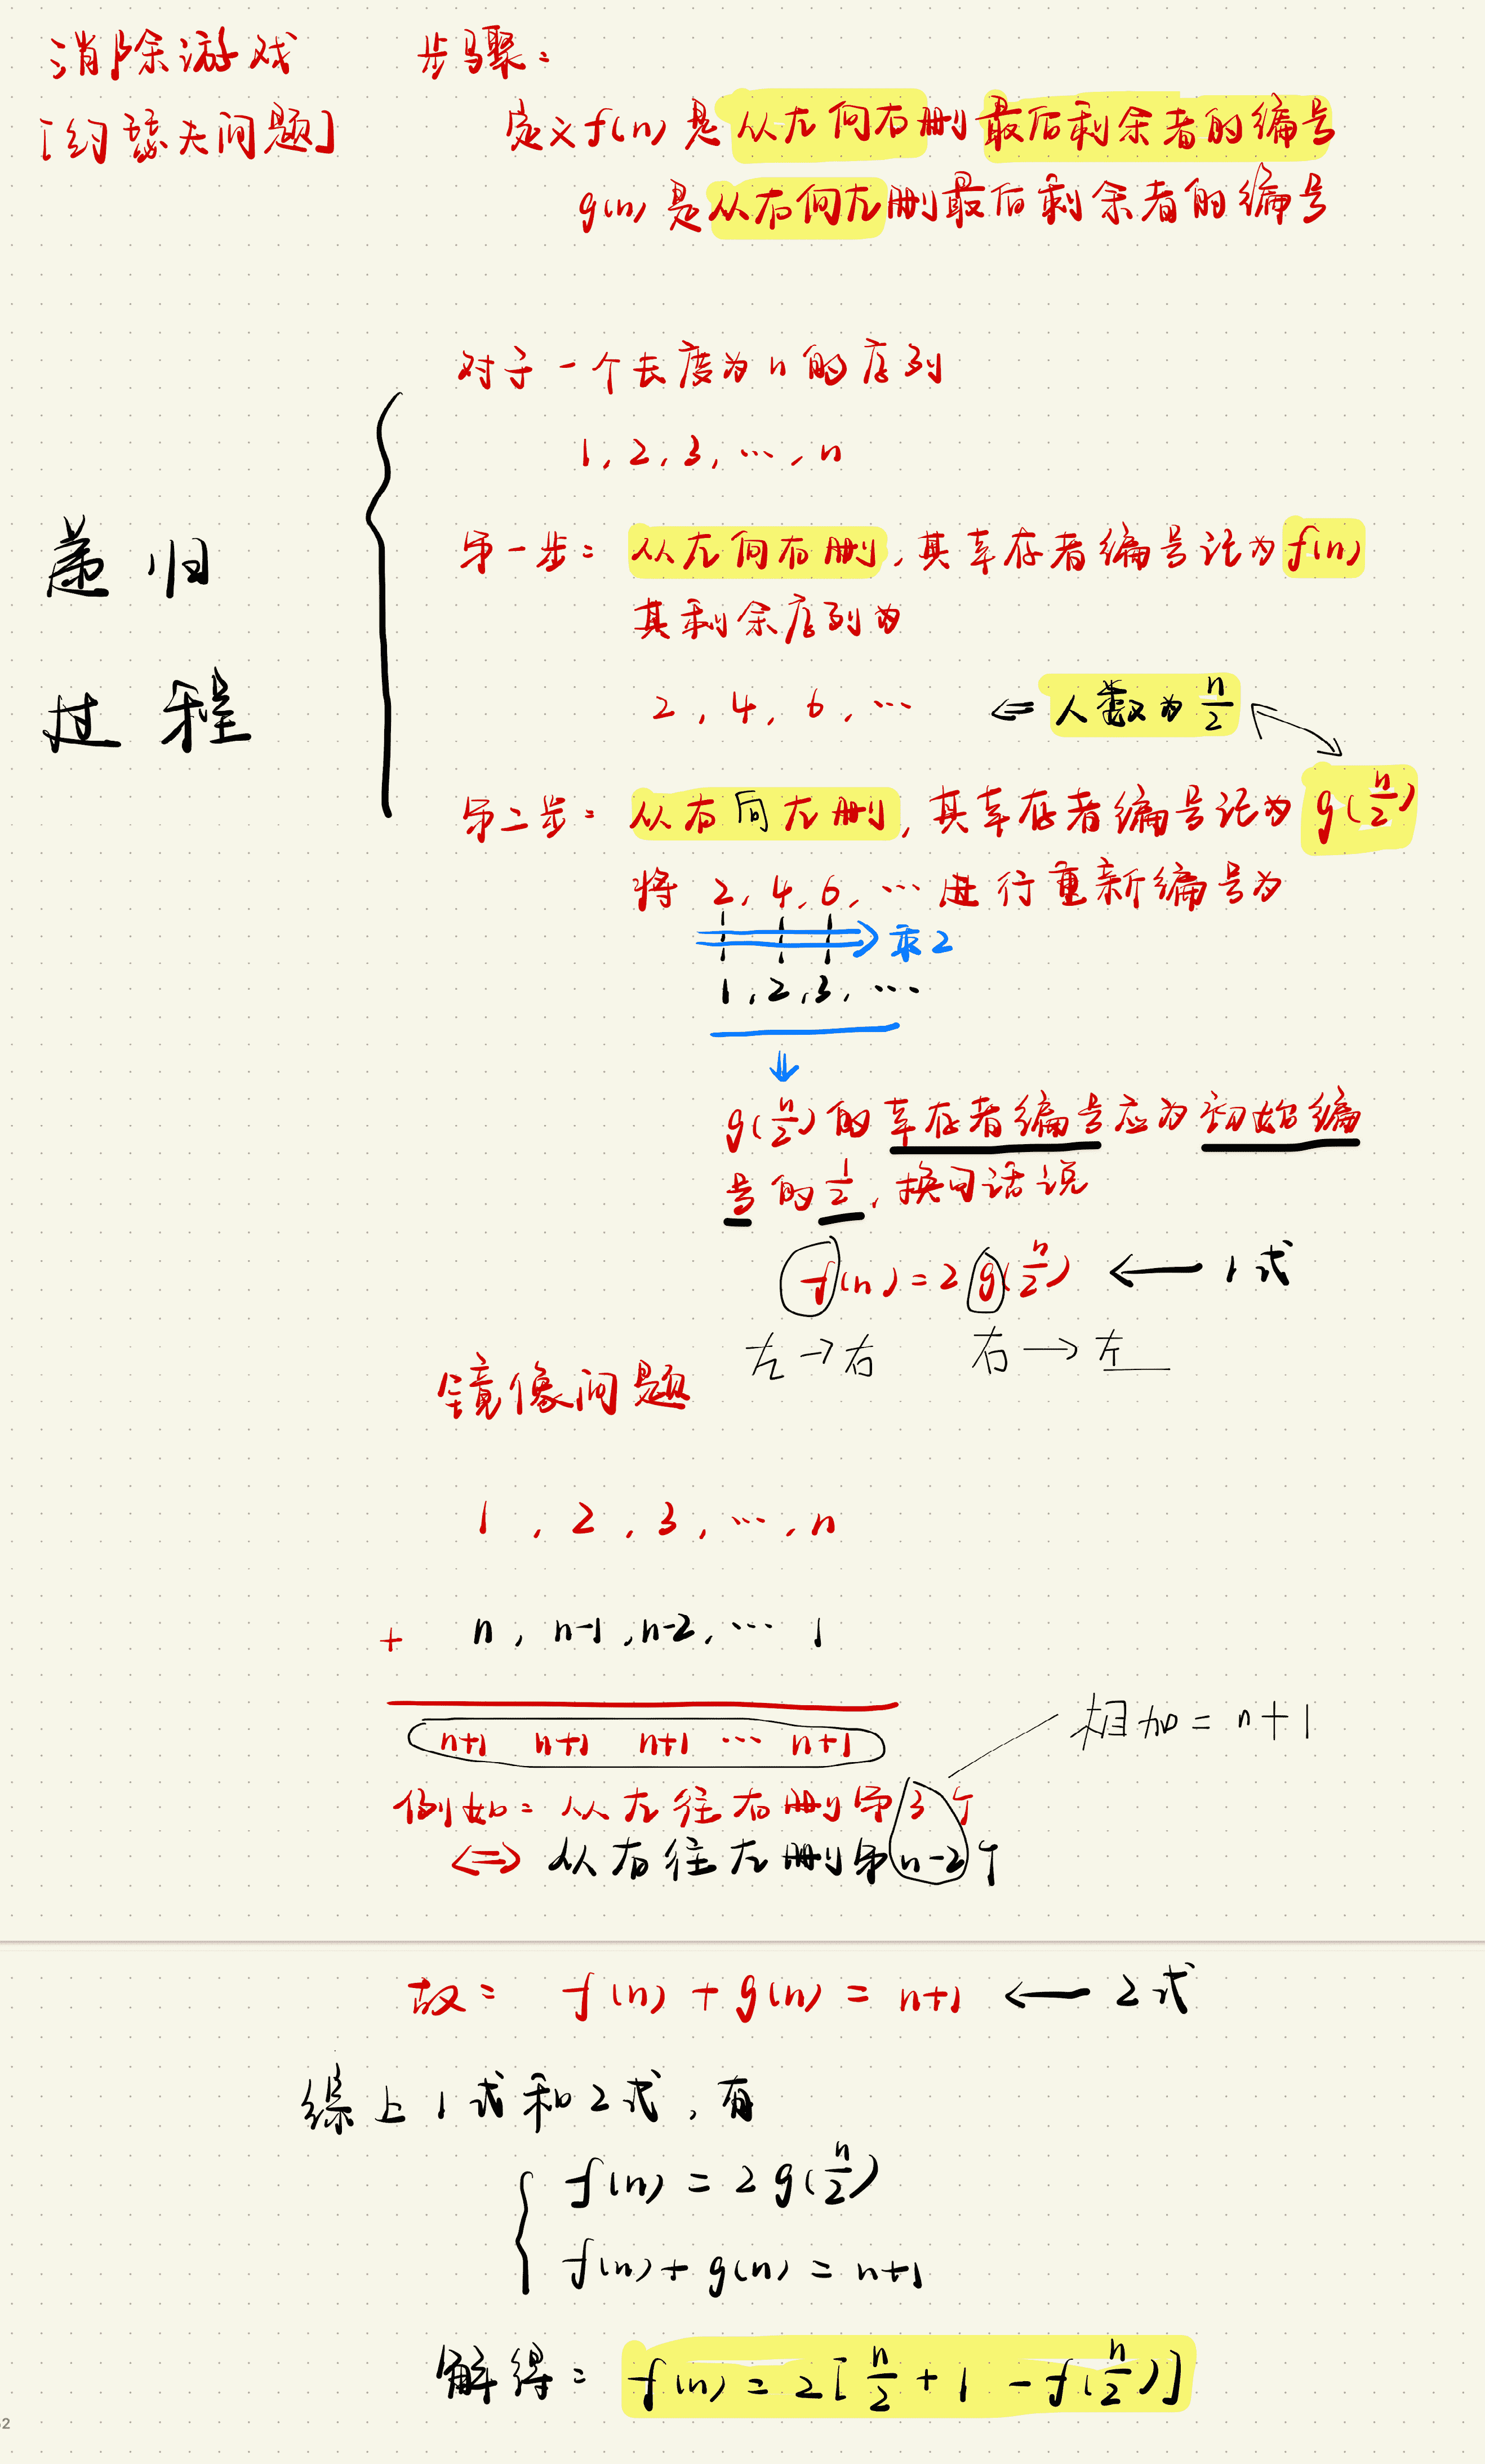 消除游戏
[约瑟夫问题]
步骤:
定义f(n)是从左向右删最后剩余者的编号
g(n)是从右向左删最后剩余者的编号
递归
过程
对于一个长度为n的序列
1, 2, 3, …, n
第一步: 从左向右删, 其幸存者编号记为f(n)
其剩余序列为
2, 4, 6, … ⇐ 人数为 n/2
第二步: 从右向左删, 其幸存者编号记为 g(n/2)
将 2, 4, 6, … 进行重新编号为
乘2
1, 2, 3, …
g(n/2)的幸存者编号应为初始编
号的1/2, 换句话说
f(n) = 2g(n/2) ← 1式
左→右 右→左
镜像问题
1, 2, 3, …, n
+ n, n-1, n-2, … 1
n+1 n+1 n+1 … n+1
相加 = n+1
例如: 从左往右删第3个
⇔ 从右往左删第n-2个
故: f(n) + g(n) = n+1 ← 2式
综上1式和2式, 有
{ f(n) = 2g(n/2)
f(n) + g(n) = n+1
解得: f(n) = 2[n/2 + 1 - f(n/2)]